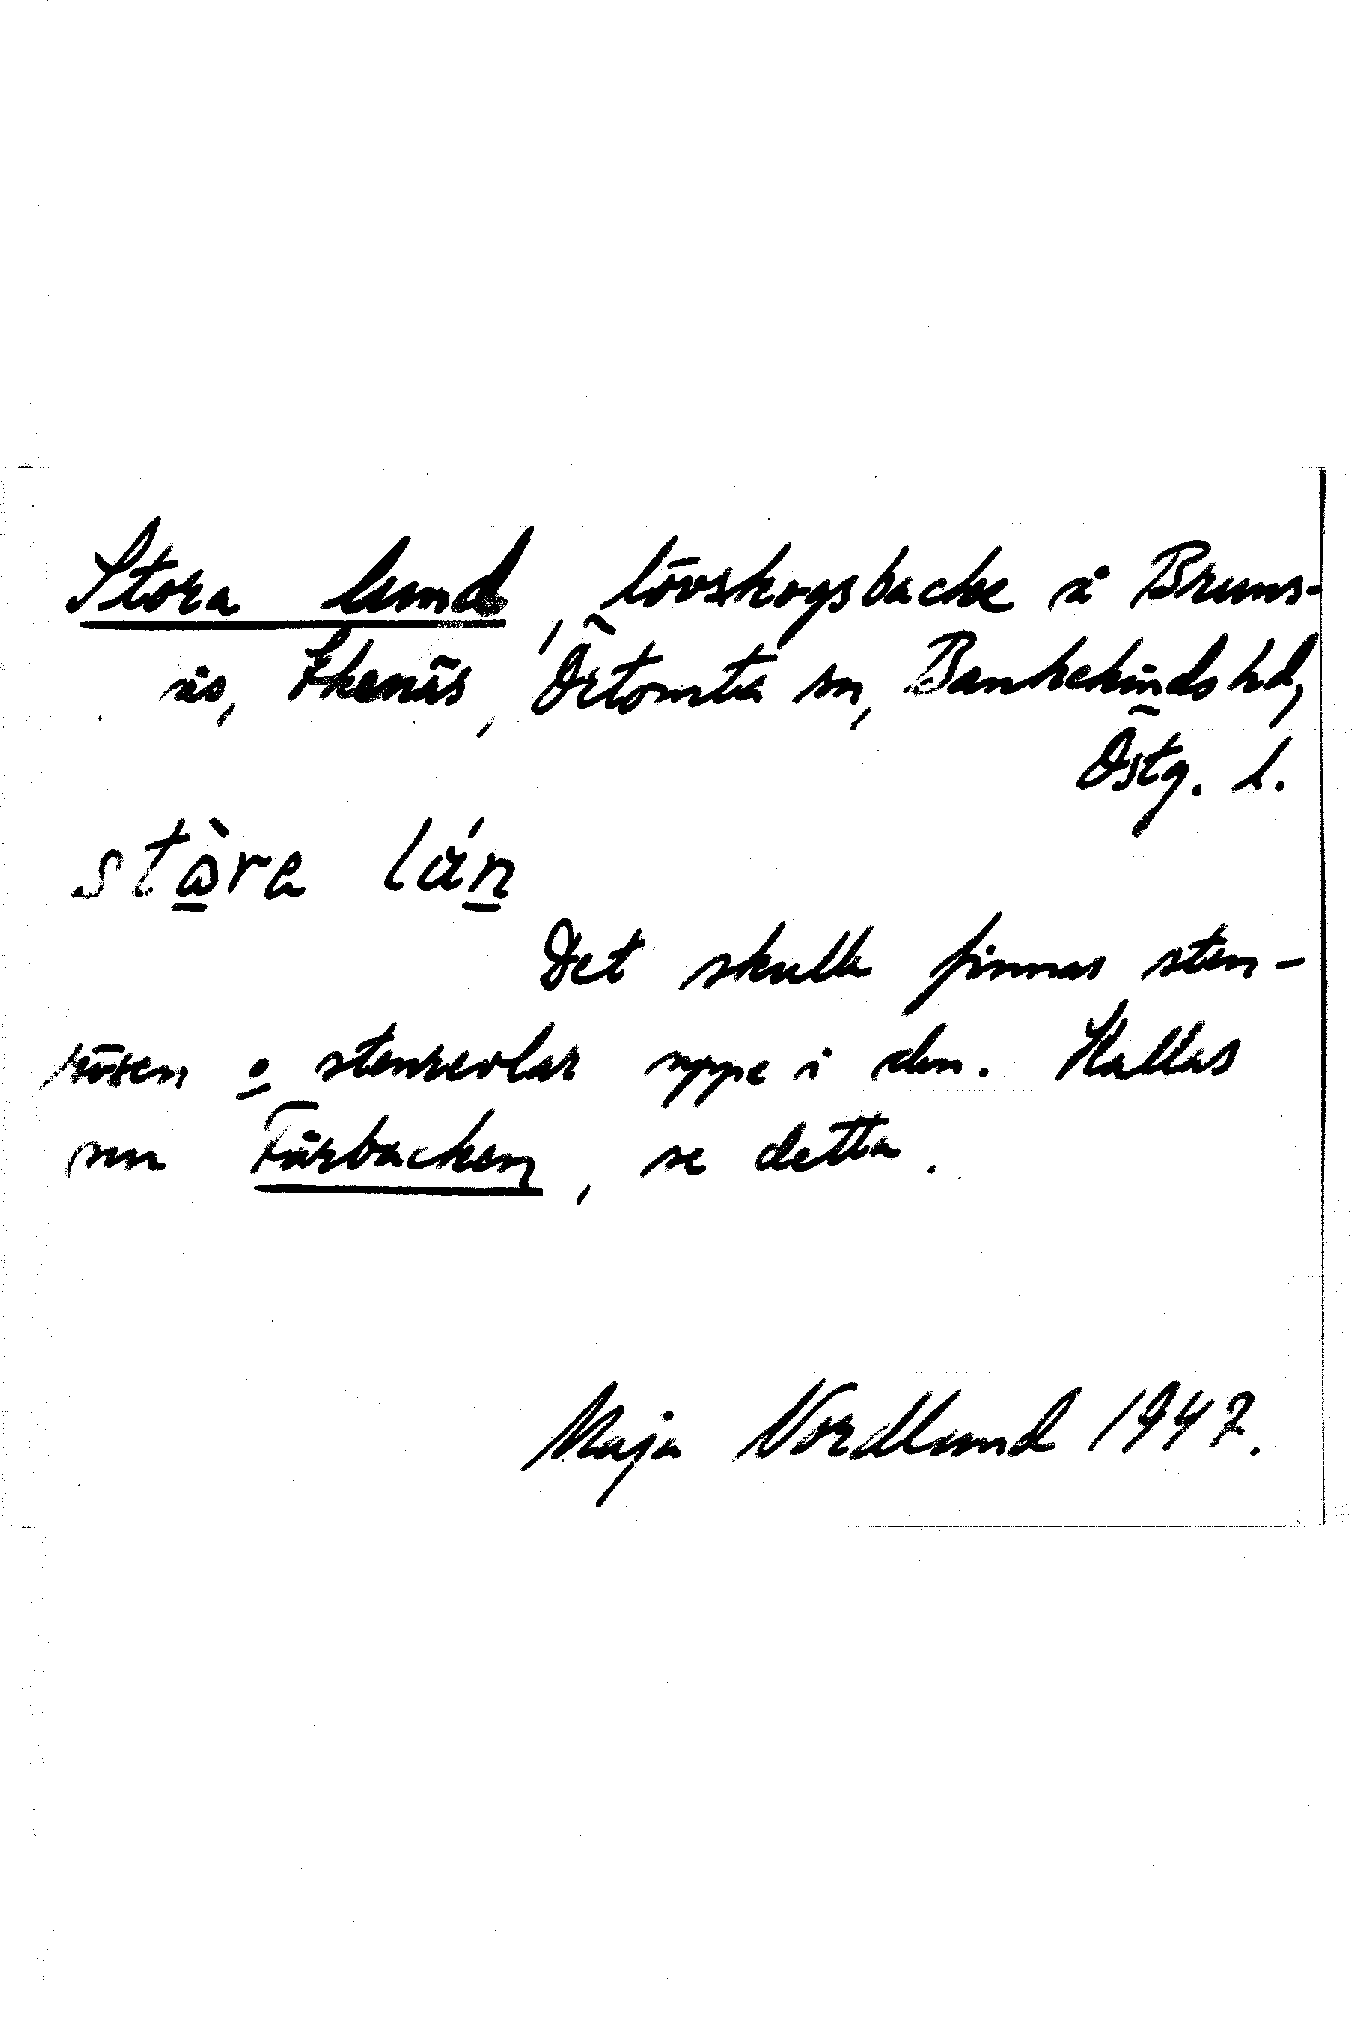 Stora lund, lövskogsbacke å Bruns-
näs, Ekenäs, Örtomta sn, Bankekinds hd,
Östg. l.
stàra lán
Det skulle finnas sten-
rösen o stenrevlar uppe i den. Kallas
nu Fårbacken, se detta.
Maja Nordlund 1947.